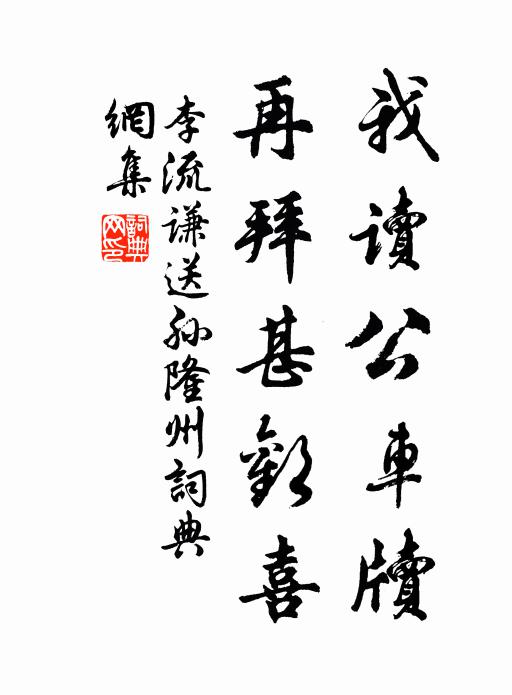 我讀公車牘
再拜甚歡喜
李流謙送孙隆州詞典
網集
詞典網印